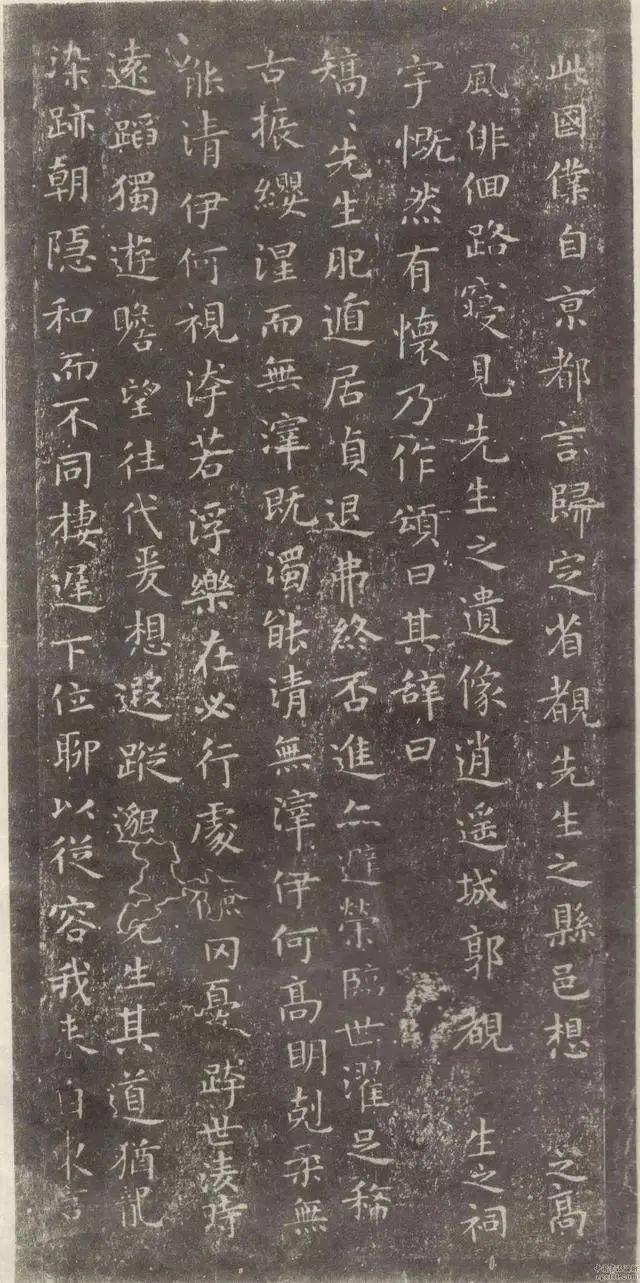 此國僕自京都言歸定省覩先生之縣邑想 之高
風俳佪路寢見先生之遺像逍遥城郭覩 生之祠
宇慨然有懷乃作頌曰其辭曰
矯〻先生肥遁居貞退弗終否進亦避榮臨世濯足稀
古振纓涅而無滓既濁能清無滓伊何高明剋柔無
能清伊何視洿若浮樂在必行處儉冈憂跨世凌時
遠蹈獨遊瞻望往代爰想遐蹤邈 先生其道猶龍
染跡朝隱和而不同棲遲下位聊以從容我来自東言